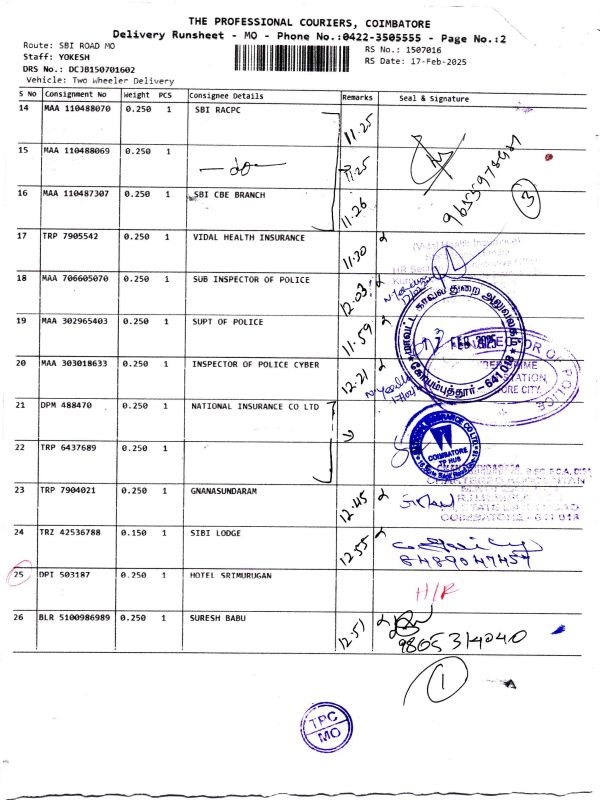 THE PROFESSIONAL COURIERS, COIMBATORE
Delivery Runsheet - MO - Phone No.:0422-3505555 - Page No.:2
Route: SBI ROAD MO
RS No.: 1507016
Staff: YOKESH
RS Date: 17-Feb-2025
DRS No.: DCJB150701602
Vehicle: Two Wheeler Delivery
S No Consignment No Weight PCS Consignee Details Remarks Seal & Signature
14 MAA 110488070 0.250 1 SBI RACPC 11.25
15 MAA 110488069 0.250 1 —do— 11.25
9655978981
16 MAA 110487307 0.250 1 SBI CBE BRANCH 11.26
3
17 TRP 7905542 0.250 1 VIDAL HEALTH INSURANCE 11.30
(Vidal Health Insurance)
18 MAA 706605070 0.250 1 SUB INSPECTOR OF POLICE 12.03
மாவட்ட காவல் துறை அலுவலகம்
கோயம்புத்தூர் - 641 018
19 MAA 302965403 0.250 1 SUPT OF POLICE 11.59
FEB 2025
OF POLICE
20 MAA 303018633 0.250 1 INSPECTOR OF POLICE CYBER 12.21
21 DPM 488470 0.250 1 NATIONAL INSURANCE CO LTD
COIMBATORE
TP HUB
22 TRP 6437689 0.250 1
23 TRP 7904021 0.250 1 GNANASUNDARAM 12.45
COIMBATORE - 641 018
24 TRZ 42536788 0.150 1 SIBI LODGE 12.55
8489047457
25 DPI 503187 0.250 1 HOTEL SRIMURUGAN
H/R
26 BLR 5100986989 0.250 1 SURESH BABU 12.51
9865314040
1
TPC
MO